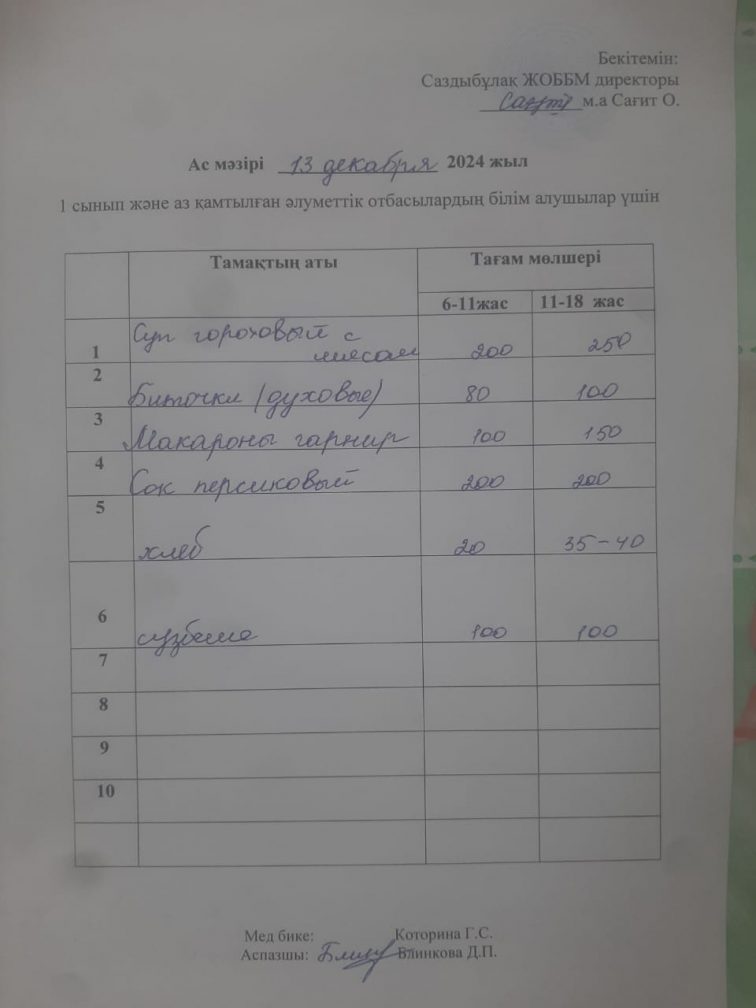 Бекітемін:
Саздыбұлақ ЖОББМ директоры
Сағит м.а Сағит О.
Ас мәзірі 13 декабря 2024 жыл
1 сынып және аз қамтылған әлуметтік отбасылардың білім алушылар үшін
Тамақтың аты Тағам мөлшері
6-11жас 11-18 жас
1 Суп гороховый с мясом 200 250
2 Биточки (духовые) 80 100
3 Макароны гарнир 100 150
4 Сок персиковый 200 200
5 хлеб 20 35-40
6 сузбеше 100 100
7
8
9
10
Мед бике: Которина Г.С.
Аспазшы: Блинкова Д.П.